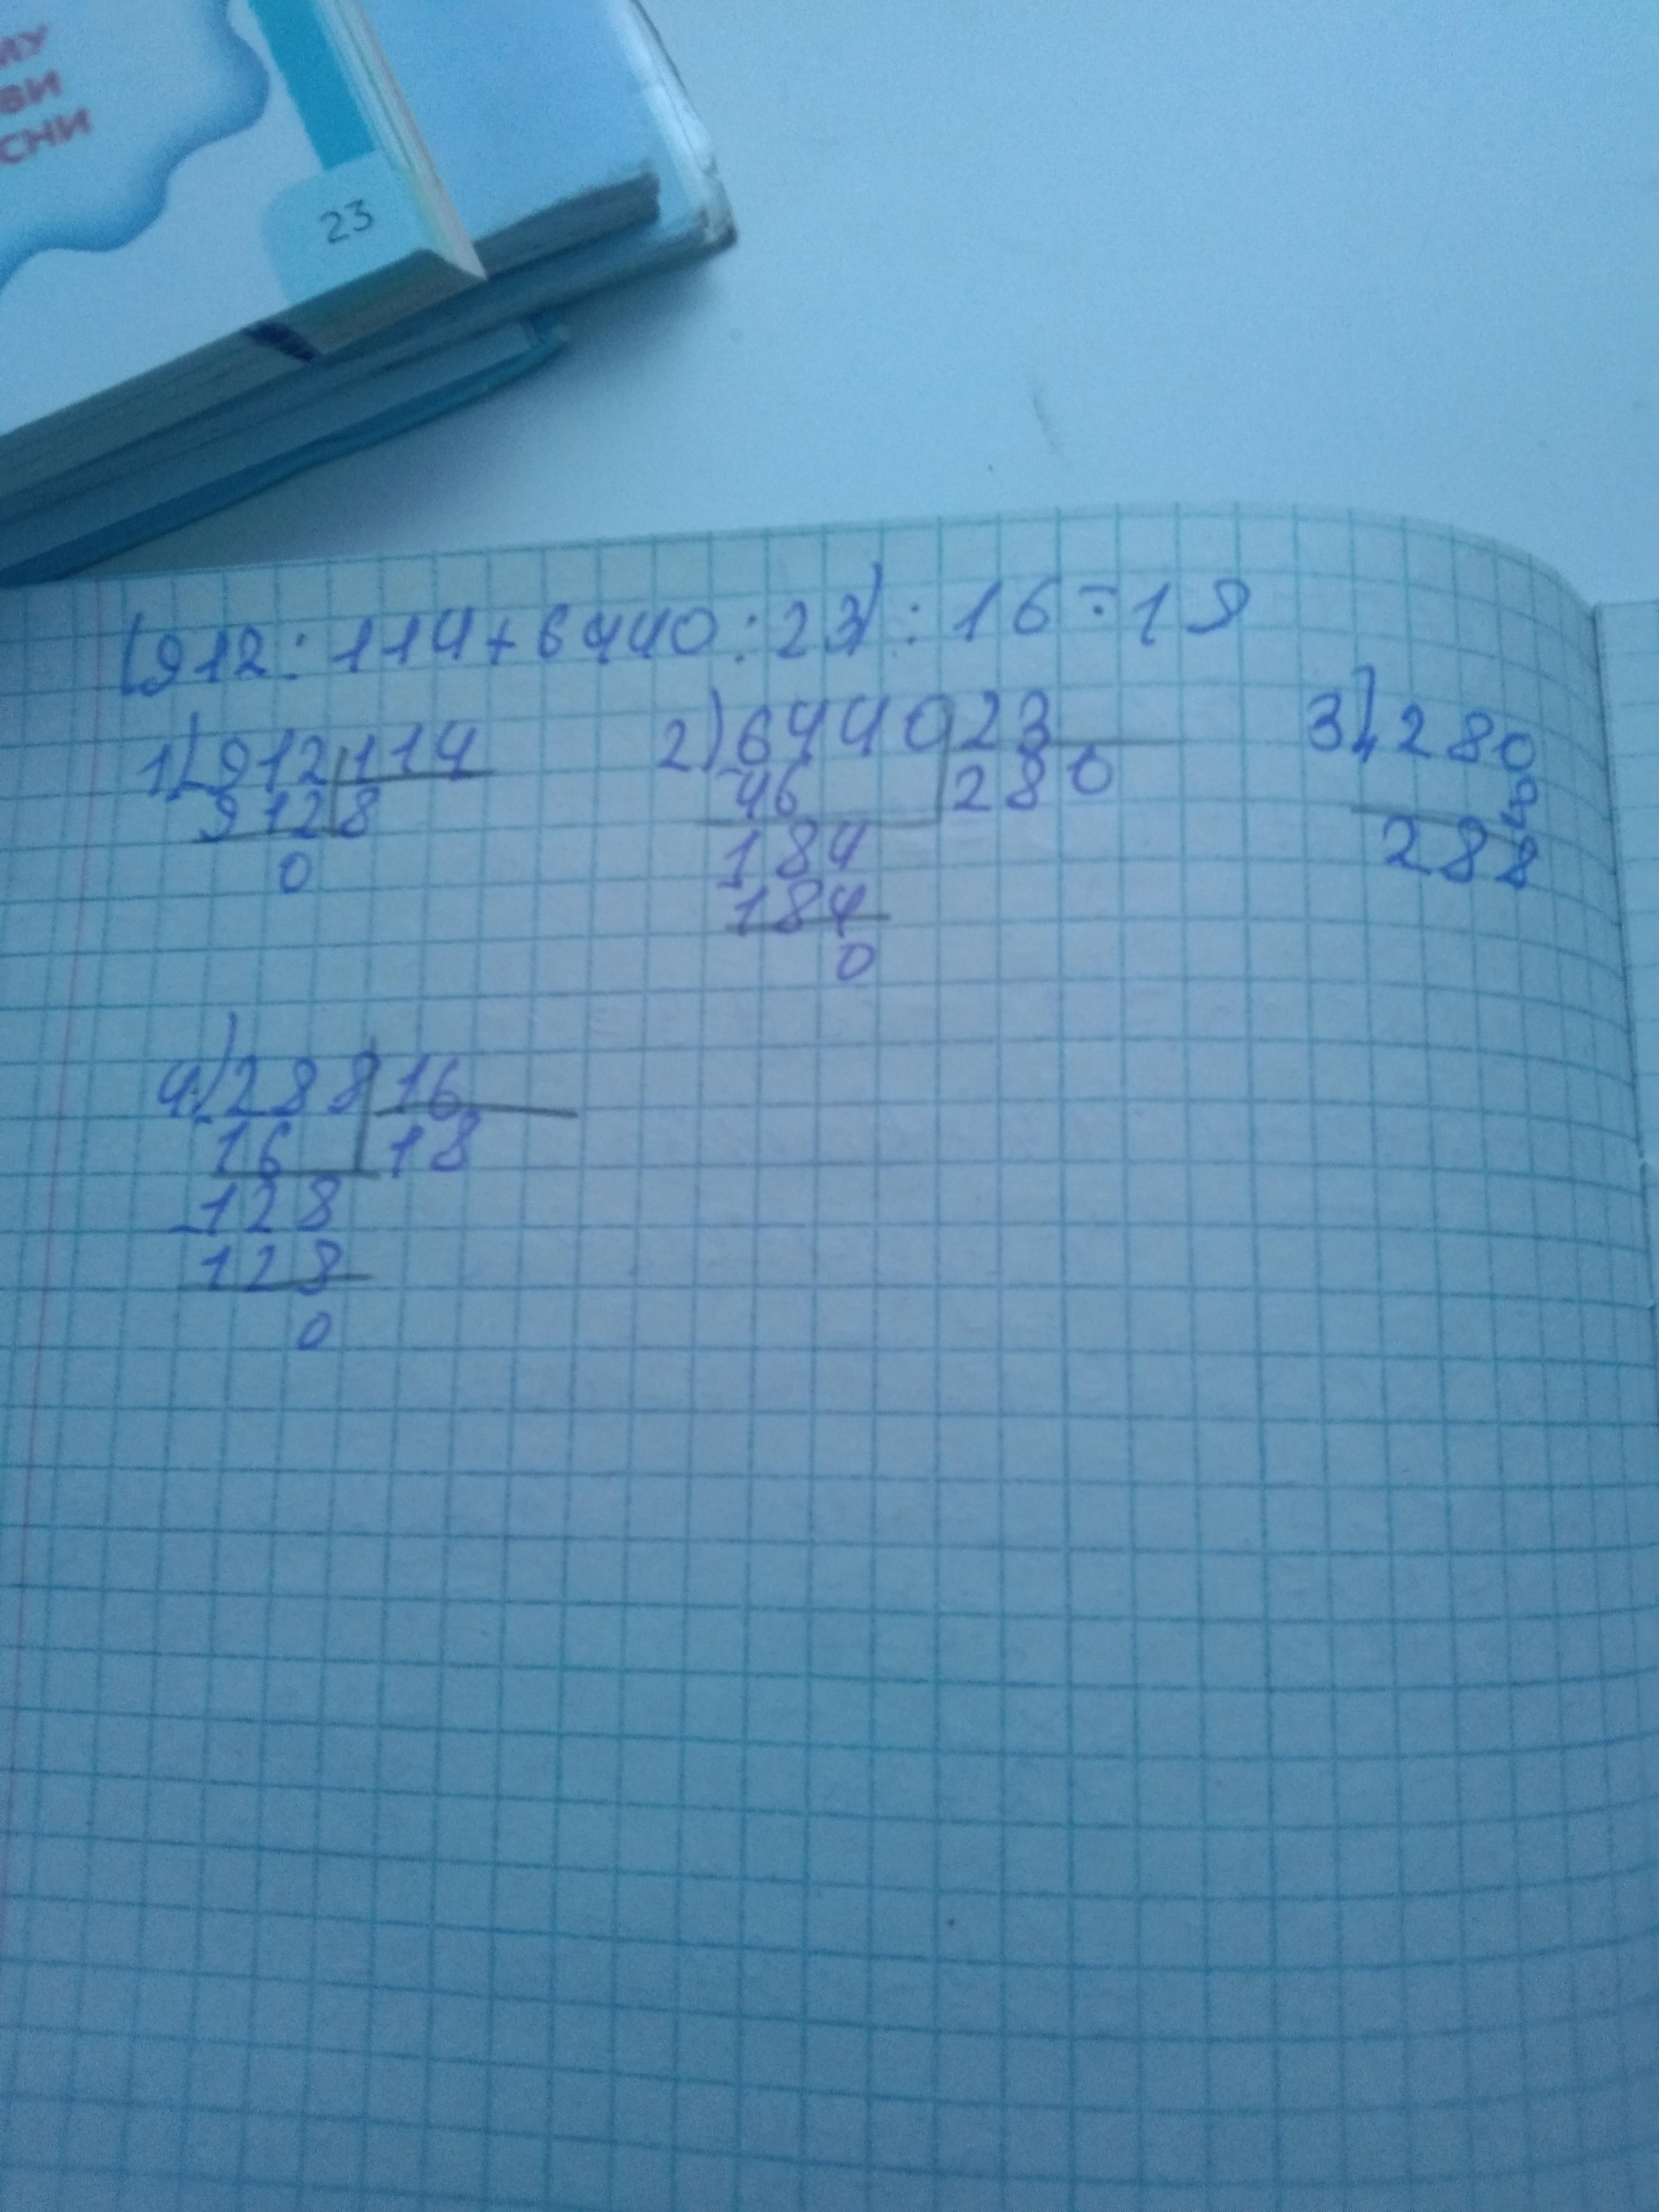 му
ви
сни
23
(912:114+6440:23):16=18
1) 912 114
912 8
0
2) 6440 23
46 280
184
184
0
3) 280
8
288
4) 288 16
16 18
128
128
0